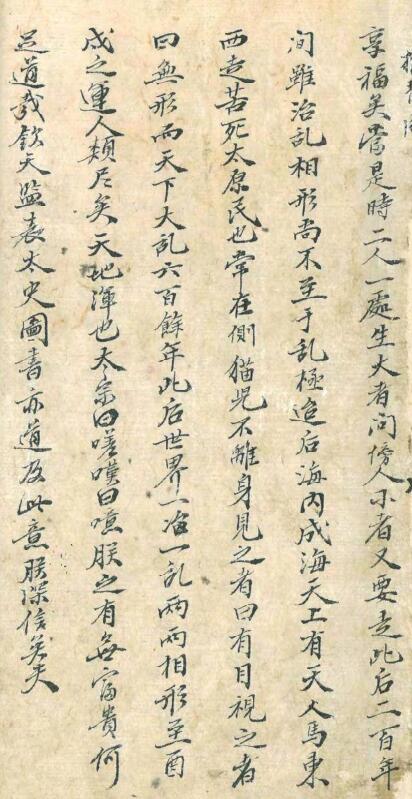 享福矣常是時二人一處生大者问傍人小者又要走此后二百年
间雖治乱相形尚不至于乱極迨后海内成海天上有天人馬東
西走苦死太原民也常在側猫児不離身見之者曰有目視之者
曰無形而天下大乱六百餘年此后世界一治一乱两两相形至酉
戌之運人類尽矣天地渾也太宗曰嗟嘆曰噫朕之有無富貴何
足道哉欽天监袁太史圖書亦道及此意朕深信矣夫